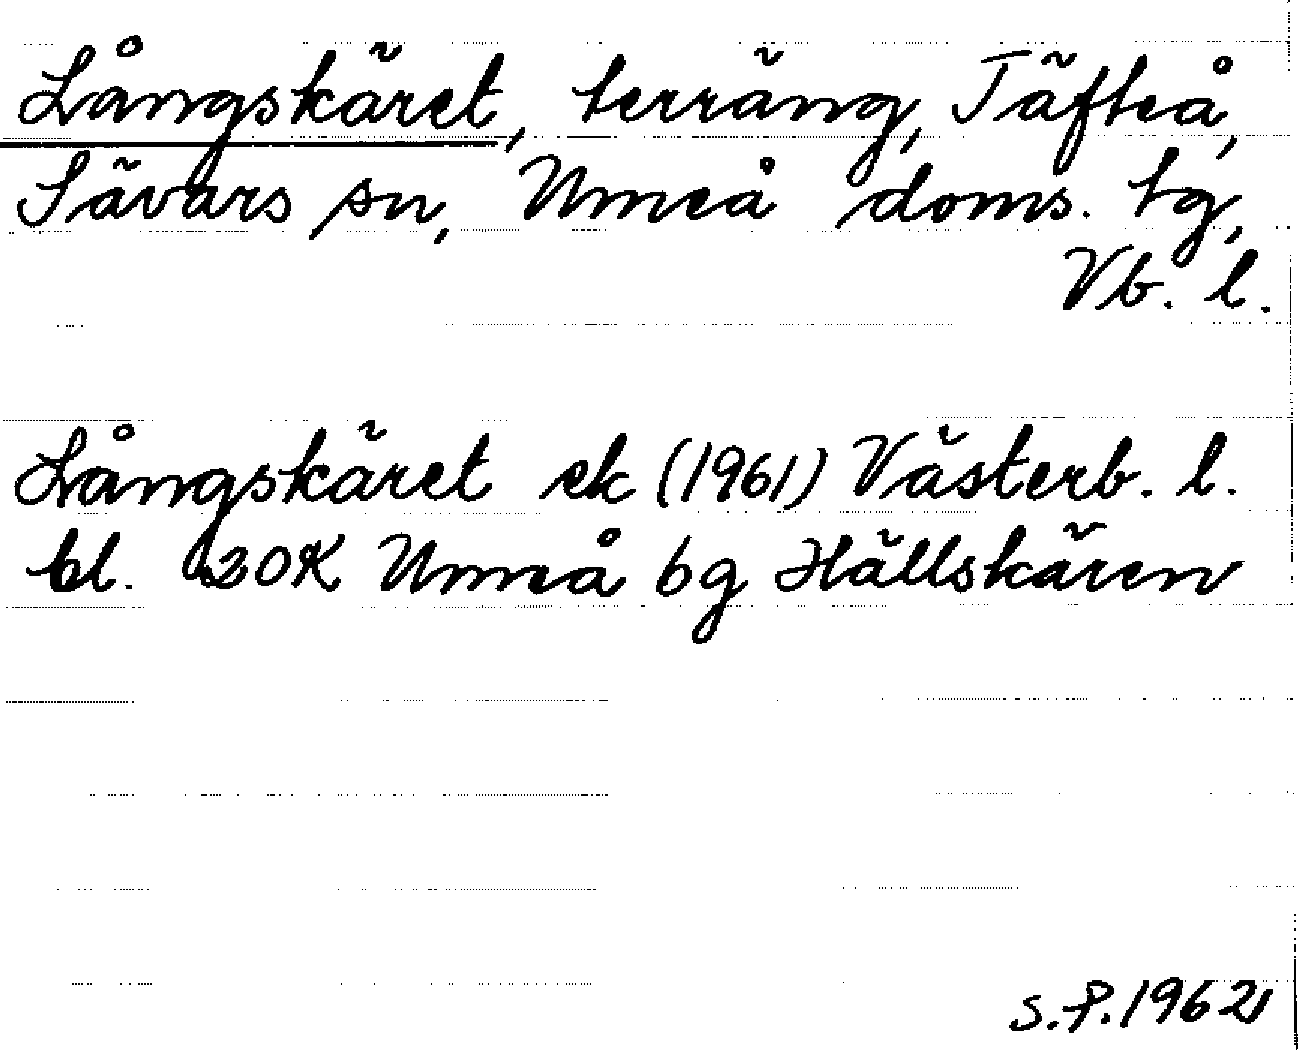 Långskäret, terräng, Täfteå,
Sävars sn, Umeå doms. tg,
Vb. l.
Långskäret ek (1961) Västerb. l.
bl. 20K Umeå 6g Hällskären
S.P. 1962